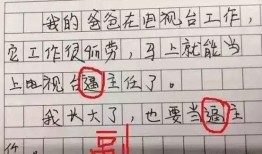 我的爸爸在电视台工作,
它工作很辛劳,马上就能当
上电视台逼主任了。
我长大了,也要当逼主
任。 副